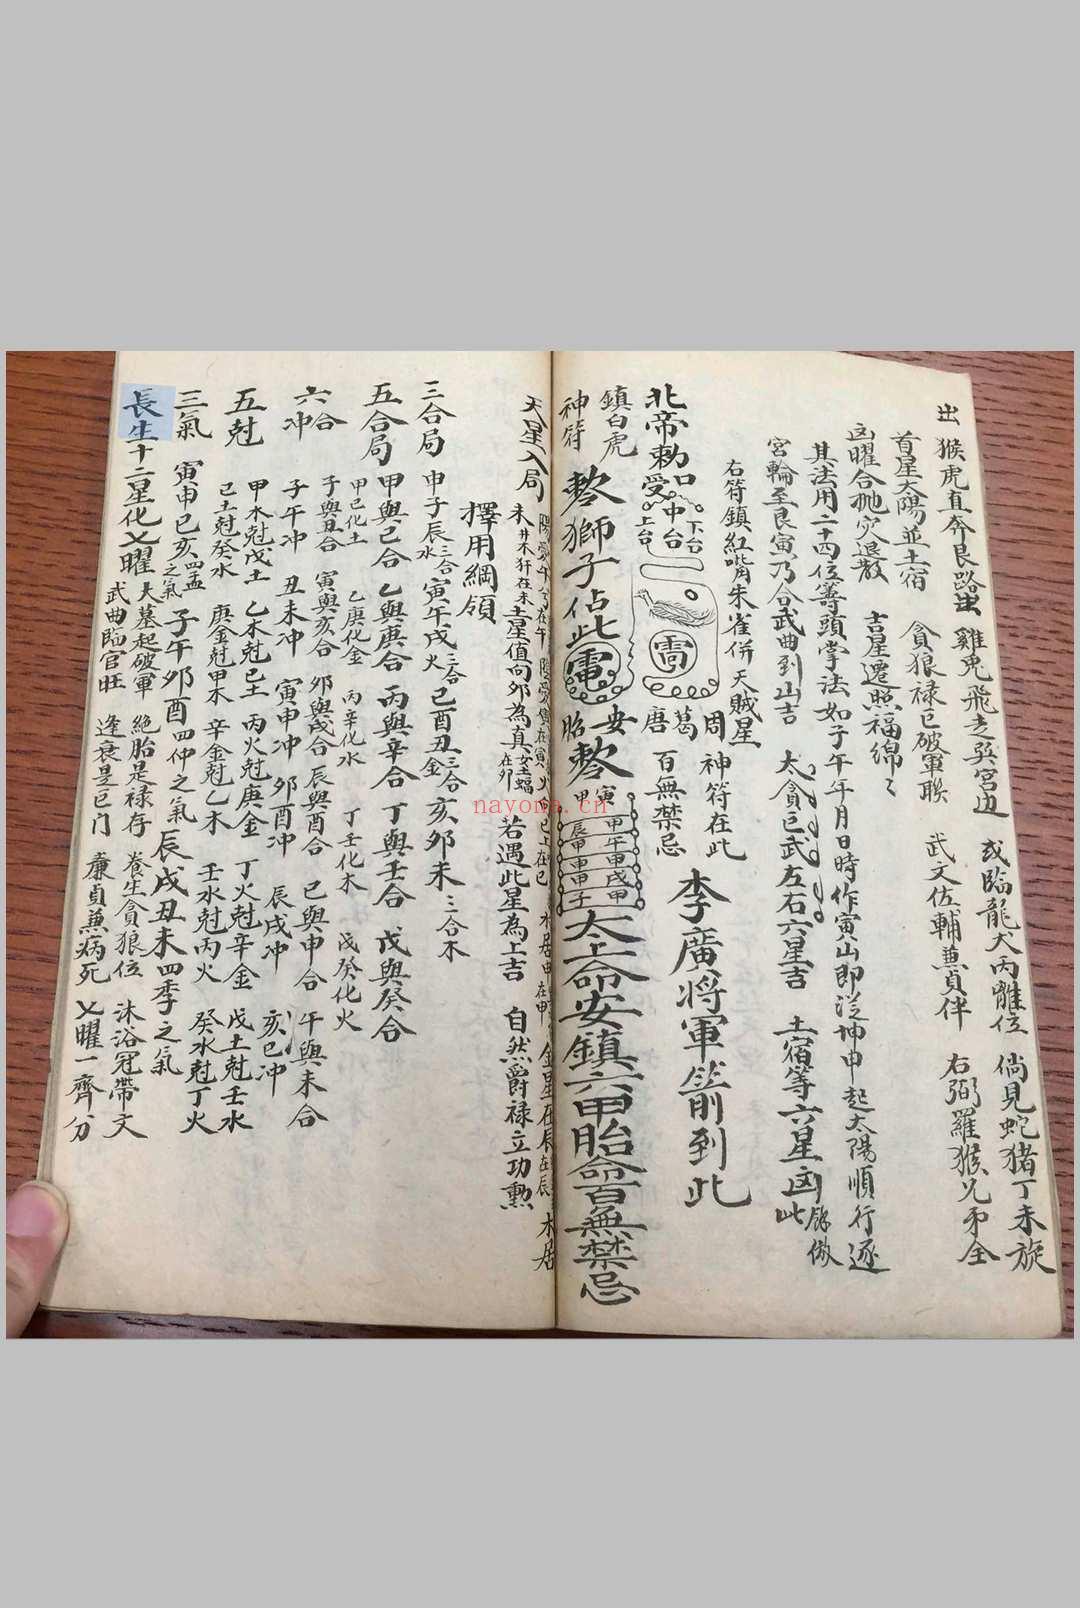 出 猴虎直奔艮路出 雞兎飛走巽宮边 或臨龍犬丙離位 倘見蛇猪丁未旋
首星太陽並土宿 貪狼禄巨破軍联 武文佐輔兼貞伴 右弼羅猴兄弟全
凶曜合地穴退散 吉星遷照福綿々
其法用二十四位籌頭掌法如子午年月日時作寅山即從坤申起太陽順行逐
宮輪至艮寅乃合武曲到山吉 太貪巨武左右六星吉 土宿等六星凶此餘倣
右符鎮紅嘴朱雀併天賊星
北帝勅口受 上台 中台 下台
周 葛 唐
神符在此 百無禁忌
李廣將軍箭到此
鎮白虎
神符
獅子佔此電
太上命安鎮六甲胎命百無禁忌
天星入局
土星值向夘為真
若遇此星為上吉 自然爵禄立功勲
擇用綱領
三合局 申子辰三合水 寅午戌三合火 巳酉丑三合金 亥夘未三合木
五合局 甲與己合 乙與庚合 丙與辛合 丁與壬合 戊與癸合
甲己化土 乙庚化金 丙辛化水 丁壬化木 戊癸化火
六合 子與丑合 寅與亥合 夘與戌合 辰與酉合 巳與申合 午與未合
六冲 子午冲 丑未冲 寅申冲 夘酉冲 辰戌冲 亥巳冲
五尅 甲木尅戊土 乙木尅己土 丙火尅庚金 丁火尅辛金 戊土尅壬水
己土尅癸水 庚金尅甲木 辛金尅乙木 壬水尅丙火 癸水尅丁火
三氣 寅申巳亥四孟之氣 子午夘酉四仲之氣 辰戌丑未四季之氣
長生十二星化乂曜 大墓起破軍 絶胎是禄存 養生貪狼位 沐浴冠帶文
武曲臨官旺 逢衰是巨门 廉貞兼病死 乂曜一齊分
nayona.cn